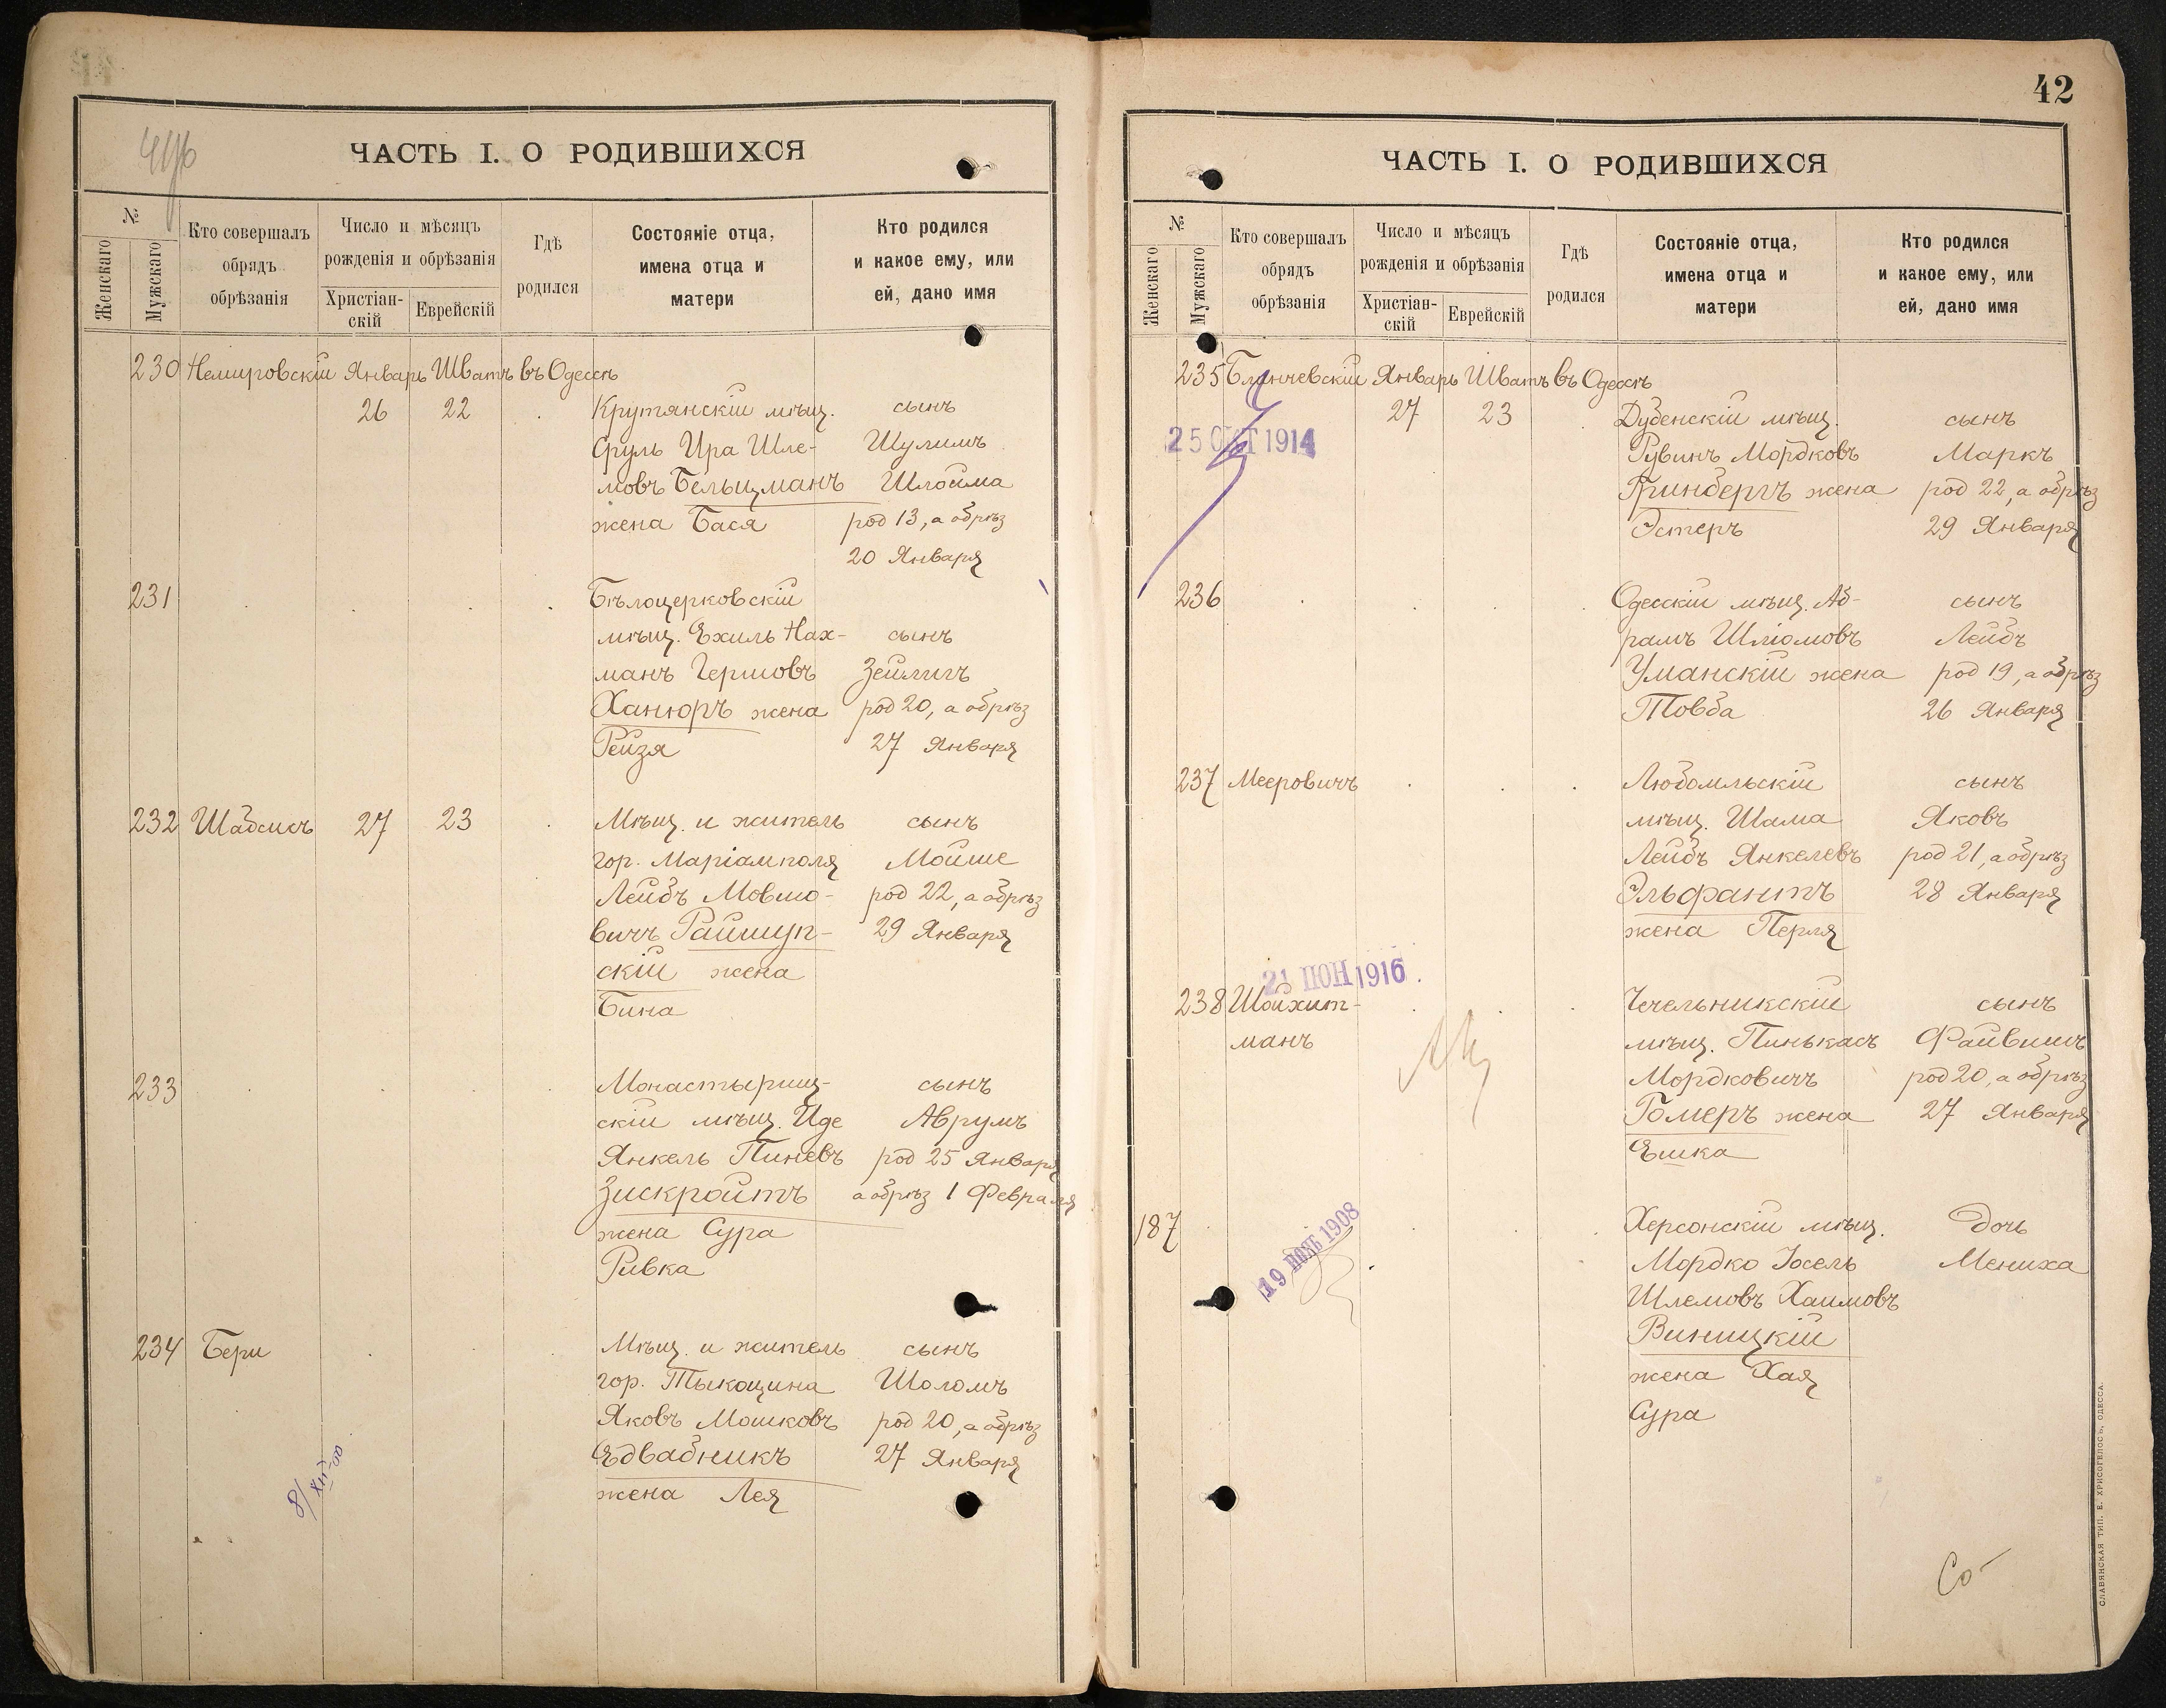 ЧАСТЬ I. О РОДИВШИХСЯ
№
Женскаго
Мужскаго
Кто совершалъ
обрядъ
обрѣзанія
Число и мѣсяцъ
рожденія и обрѣзанія
Христіан-
скій
Еврейскій
Гдѣ
родился
Состояніе отца,
имена отца и
матери
Кто родился
и какое ему, или
ей, дано имя
230 Немировскій Январь Шватъ въ Одессѣ
26 22 Крутянскій мѣщ. сынъ
Сруль Ира Шле- Шулимъ
мовъ Бельцманъ Шлойма
жена Бася род 13, а обрѣз
20 Января
231 Бѣлоцерковскій
мѣщ. Ехиль Нах- сынъ
манъ Гершовъ Зейлигъ
Ханюръ жена род 20, а обрѣз
Рейзя 27 Января
232 Шабсисъ 27 23 Мѣщ. и житель сынъ
гор. Маріамполя Мойше
Лейбъ Мовшо- род 22, а обрѣз
вичъ Райшуп- 29 Января
скій жена
Бина
233 Монастырищ- сынъ
скій мѣщ. Иде Аврумъ
Янкель Пиневъ род 25 Января
Зискройтъ а обрѣз 1 Февраля
жена Сура
Ривка
234 Бери Мѣщ. и житель сынъ
гор. Тыкоцина Шоломъ
Яковъ Мошковъ род 20, а обрѣз
Едвабникъ 27 Января
жена Лея
8/XII-00
42
ЧАСТЬ I. О РОДИВШИХСЯ
№
Женскаго
Мужскаго
Кто совершалъ
обрядъ
обрѣзанія
Число и мѣсяцъ
рожденія и обрѣзанія
Христіан-
скій
Еврейскій
Гдѣ
родился
Состояніе отца,
имена отца и
матери
Кто родился
и какое ему, или
ей, дано имя
235 Январь Шватъ въ Одессѣ
27 23 Дубенскій мѣщ. сынъ
25 ОКТ 1914
Рувинъ Мордковъ Маркъ
Гринбергъ жена род 22, а обрѣз
Эстеръ 29 Января
236 Одесскій мѣщ. Аб- сынъ
рамъ Шліомовъ Лейбъ
Уманскій жена род 19, а обрѣз
Товба 26 Января
237 Мееровичъ Любомльскій сынъ
мѣщ. Шама Яковъ
Лейбъ Янкелевъ род 21, а обрѣз
Эльфантъ 28 Января
жена Перля
21 1916
238 Шойхит- Чечельникскій сынъ
манъ мѣщ. Пинькасъ Файвишъ
Мордковичъ род 20, а обрѣз
Гомеръ жена 27 Января
Ешка
187 Херсонскій мѣщ. дочь
19 1908
Мордко Іосель Мениха
Шлемовъ Хаимовъ
Виницкій
жена Хая
Сура
СЛАВЯНСКАЯ ТИП. Е. ХРИСОГЕЛОСЪ, ОДЕССА.